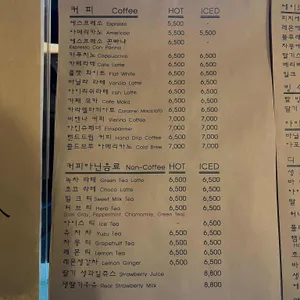 커 피 Coffee HOT ICED
에스프레소 Espresso 5,500
아메리카노 Americano 5,500 5,500
에스프레소 콘파나 6,500 -
Espresso Con Panna
카푸치노 Cappuccino 6,500 6,500
카페라떼 Cafe Latte 6,500 6,500
플랫 화이트 Flat White 6,500 6,500
바닐라 라떼 Vanilla Latte 6,500 6,500
아이리쉬라떼 Irish Latte 6,500 6,500
카페 모카 Cafe Moka 6,500 6,500
카라멜마끼아또 Caramel Macchiato 6,500 6,500
비엔나 커피 Vienna Coffee 7,000 7,000
아인슈페너 Einspanner 7,000 7,000
핸드드립 커피 Hand Drip Coffee 7,000 7,000
콜드브루 아메리카노 Cold Brew 7,000 7,000
커피아닌음료 Non-Coffee HOT ICED
녹차 라떼 Green Tea Latte 6,500 6,500
초코 라떼 Choco Latte 6,500 6,500
밀크티 Sweet Milk Tea 6,500 6,500
허 브 티 Herb Tea 6,500 6,500
(Earl Gray, Peppermint, Chamomile, Green Tea)
아이스티 Ice Tea 6,500
유 자 차 Yuzu Tea 6,500 6,500
자 몽 티 Grapefruit Tea 6,500 6,500
레 몬 티 Lemon Tea 6,500 6,500
레몬생강차 Lemon Ginger 6,500 6,500
딸기 생과일쥬스 Strawberry Juice 8,800
생딸기우유 Real Strawberry Milk 8,800